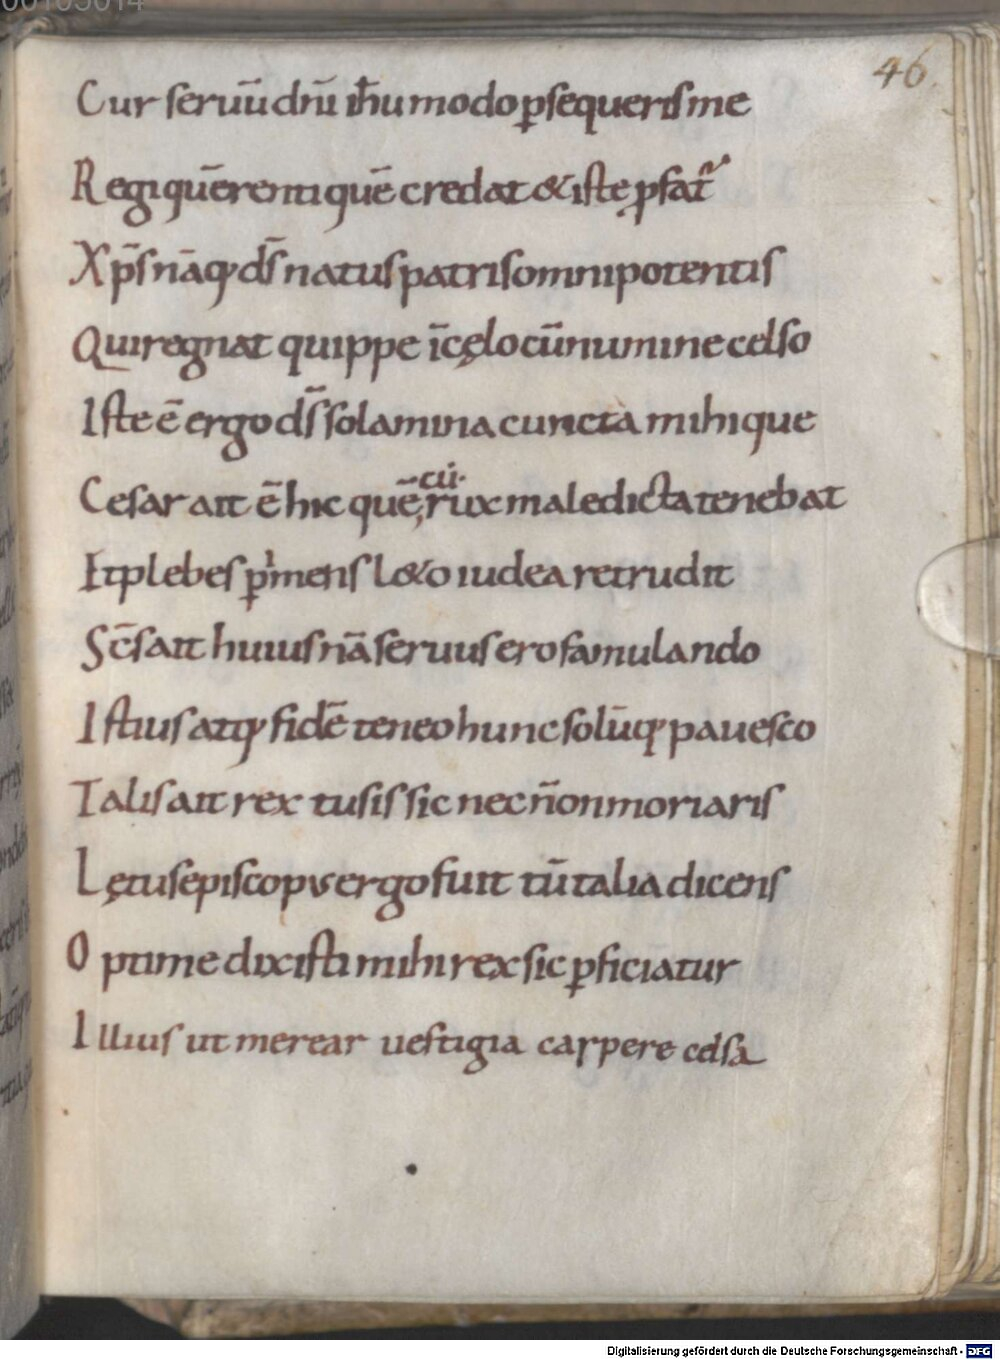 00103014
46
Cur seruū dnī ihū modo ꝑsequeris me
Regi querenti quē credat & iste ꝓfat᷑
Xp̄s nāq; ds̄ natus patris omnipotentis
Qui regnat quippe ī cęlo cū numine celso
Iste ē ergo ds̄ solamina cuncta mihique
Cesar ait ē hic quē, cū crux maledicta tenebat
Et plebes ꝑimens l&o iudea retrudit
Sc̄s ait huius nā seruus ero famulando
Istius atq; fidē teneo hunc solūq; pauesco
Talis ait rex tu sis sic nec n̄ moriaris
Lętus episcopus ergo fuit tū talia dicens
Optime dixisti mihi rex sic ꝑficiatur
Illius ut merear uestigia carpere celsa
Digitalisierung gefördert durch die Deutsche Forschungsgemeinschaft - DFG